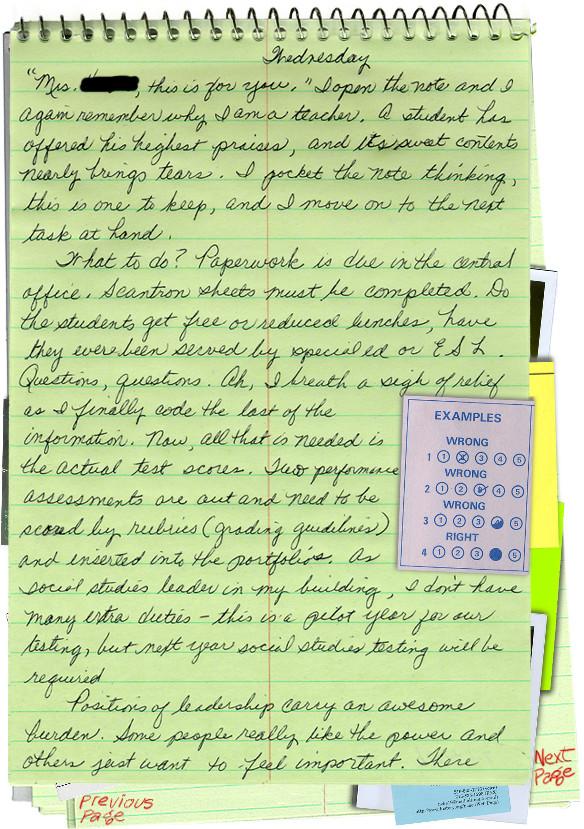 Wednesday
"Mrs. , this is for you." I open the note and I
again remember why I am a teacher. A student has
offered his highest praises, and its sweet contents
nearly brings tears. I pocket the note thinking,
this is one to keep, and I move on to the next
task at hand.
What to do? Paperwork is due in the central
office. Scantron sheets must be completed. Do
the students get free or reduced lunches, have
they ever been served by special ed or ESL.
Questions, questions. Ah, I breath a sigh of relief
as I finally code the last of the
information. Now, all that is needed is
the actual test scores. Two performance
assessments are out and need to be
scored by rubrics (grading guidelines)
and inserted into the portfolios. As
social studies leader in my building, I don't have
many extra duties - this is a pilot year for our
testing, but next year social studies testing will be
required
Positions of leadership carry an awesome
burden. Some people really like the power and
others just want to feel important. There
EXAMPLES
WRONG
1 1 2 3 4 5
WRONG
2 1 2 3 4 5
WRONG
3 1 2 3 4 5
RIGHT
4 1 2 3 4 5
Previous
Page
Next
Page